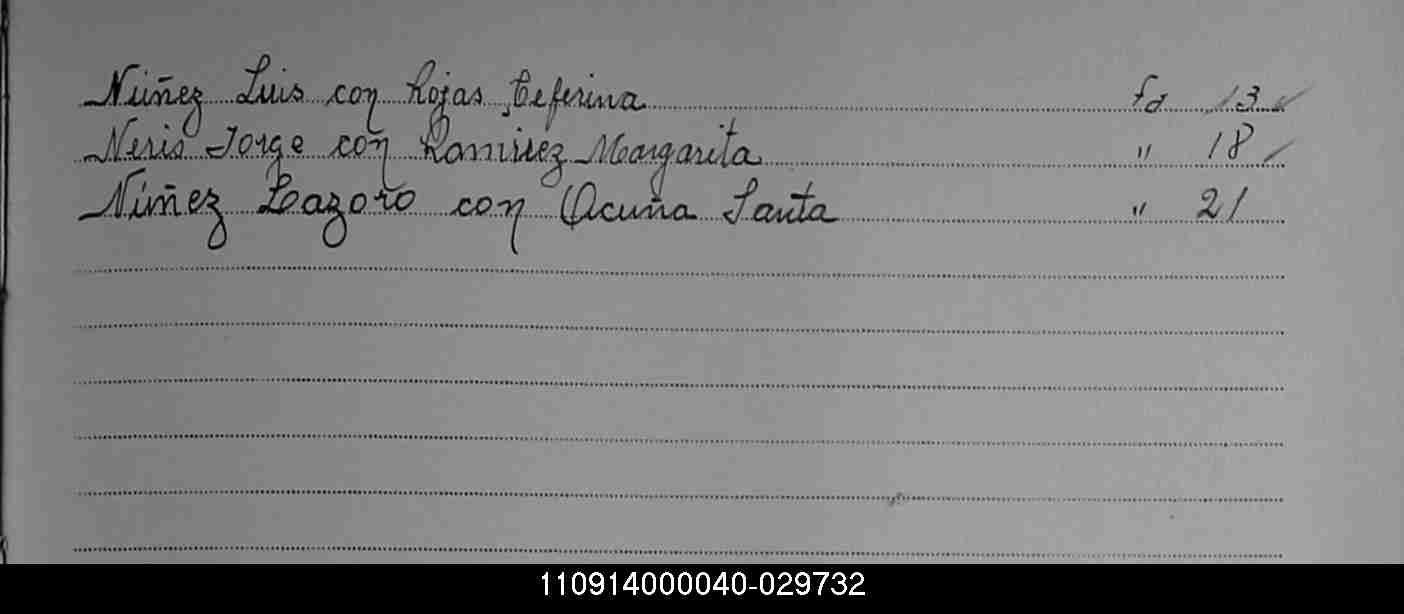 Núñez Luis con Rojas Ceferina fd 13
Neris Jorge con Ramirez Margarita " 18
Núñez Lazoro con Acuña Santa " 21
110914000040-029732